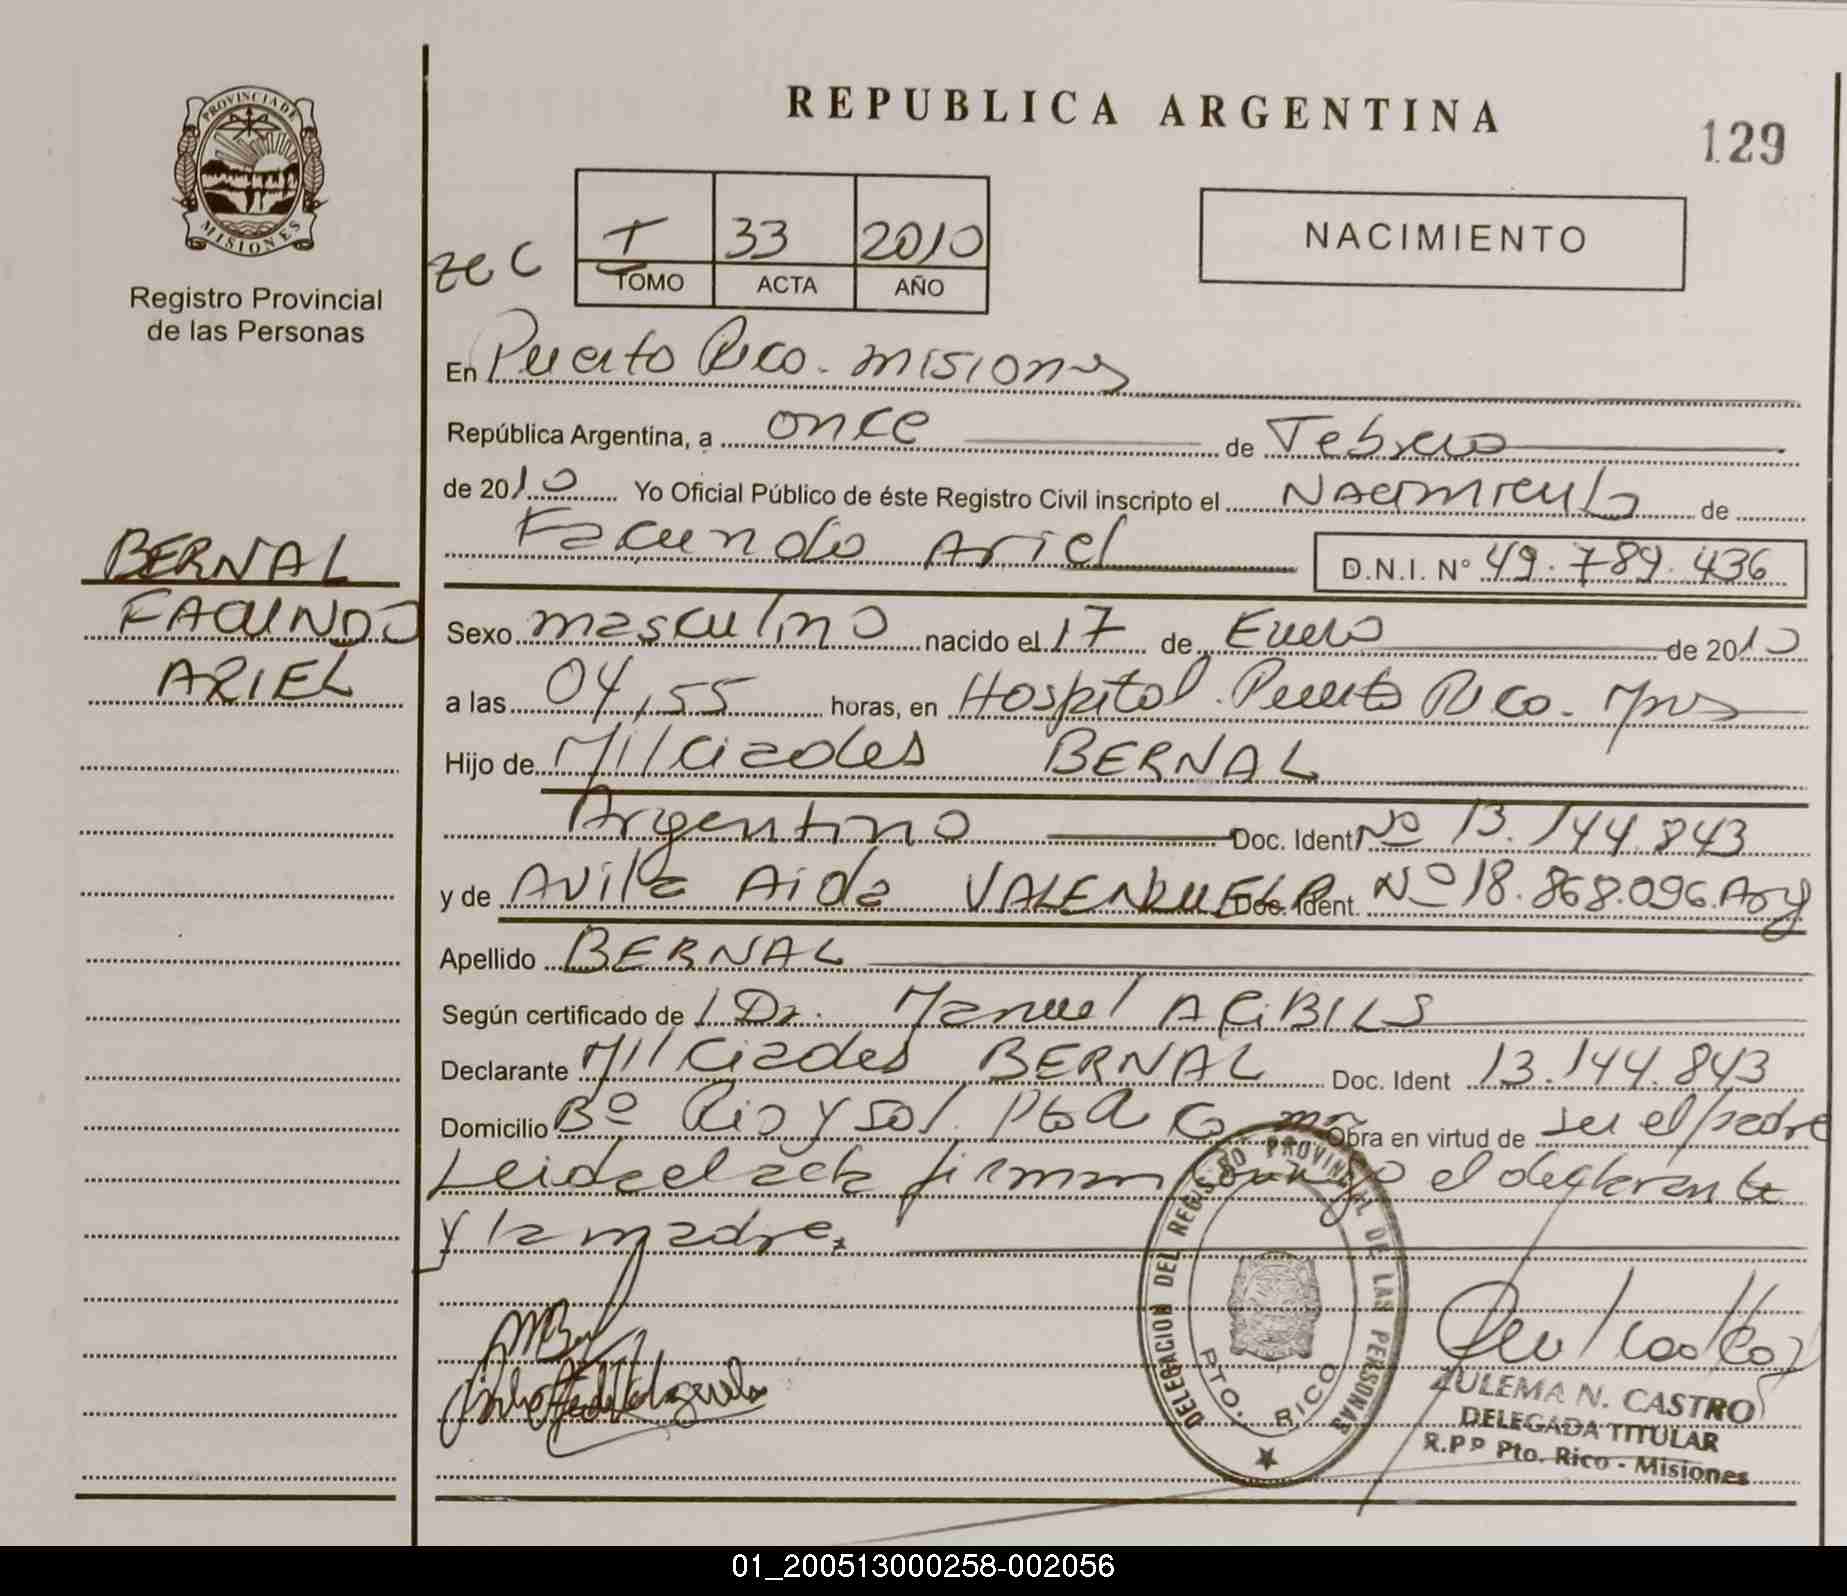 PROVINCIA DE
MISIONES
Registro Provincial
de las Personas
BERNAL
FACUNDO
ARIEL
REPUBLICA ARGENTINA
129
I 33 2010
TOMO ACTA AÑO
NACIMIENTO
En Puerto Rico. misiones
República Argentina, a once de Febrero
de 2010 Yo Oficial Público de éste Registro Civil inscripto el Nacimiento de
Facundo Ariel D.N.I. N° 49.789.436
Sexo masculino nacido el 17 de Enero de 2010
a las 04,55 horas, en Hospital Puerto Rico. Mnes
Hijo de Milciades BERNAL
Argentino Doc. Ident Nº 13.144.843
y de Avila Aida VALENZUELA Doc. Ident. Nº 18.868.096. Arg
Apellido BERNAL
Según certificado de l Dr. Manuel ARIBILS
Declarante Milciades BERNAL Doc. Ident 13.144.843
Domicilio Bº Rio y sol. Pto Rico Obra en virtud de ser el padre
Leida el acta firman conmigo el declarante
y la madre.
DELEGACION DEL REGISTRO PROVINCIAL DE LAS PERSONAS
PTO. RICO
ZULEMA N. CASTRO
DELEGADA TITULAR
R.P.P Pto. Rico - Misiones
01_200513000258-002056